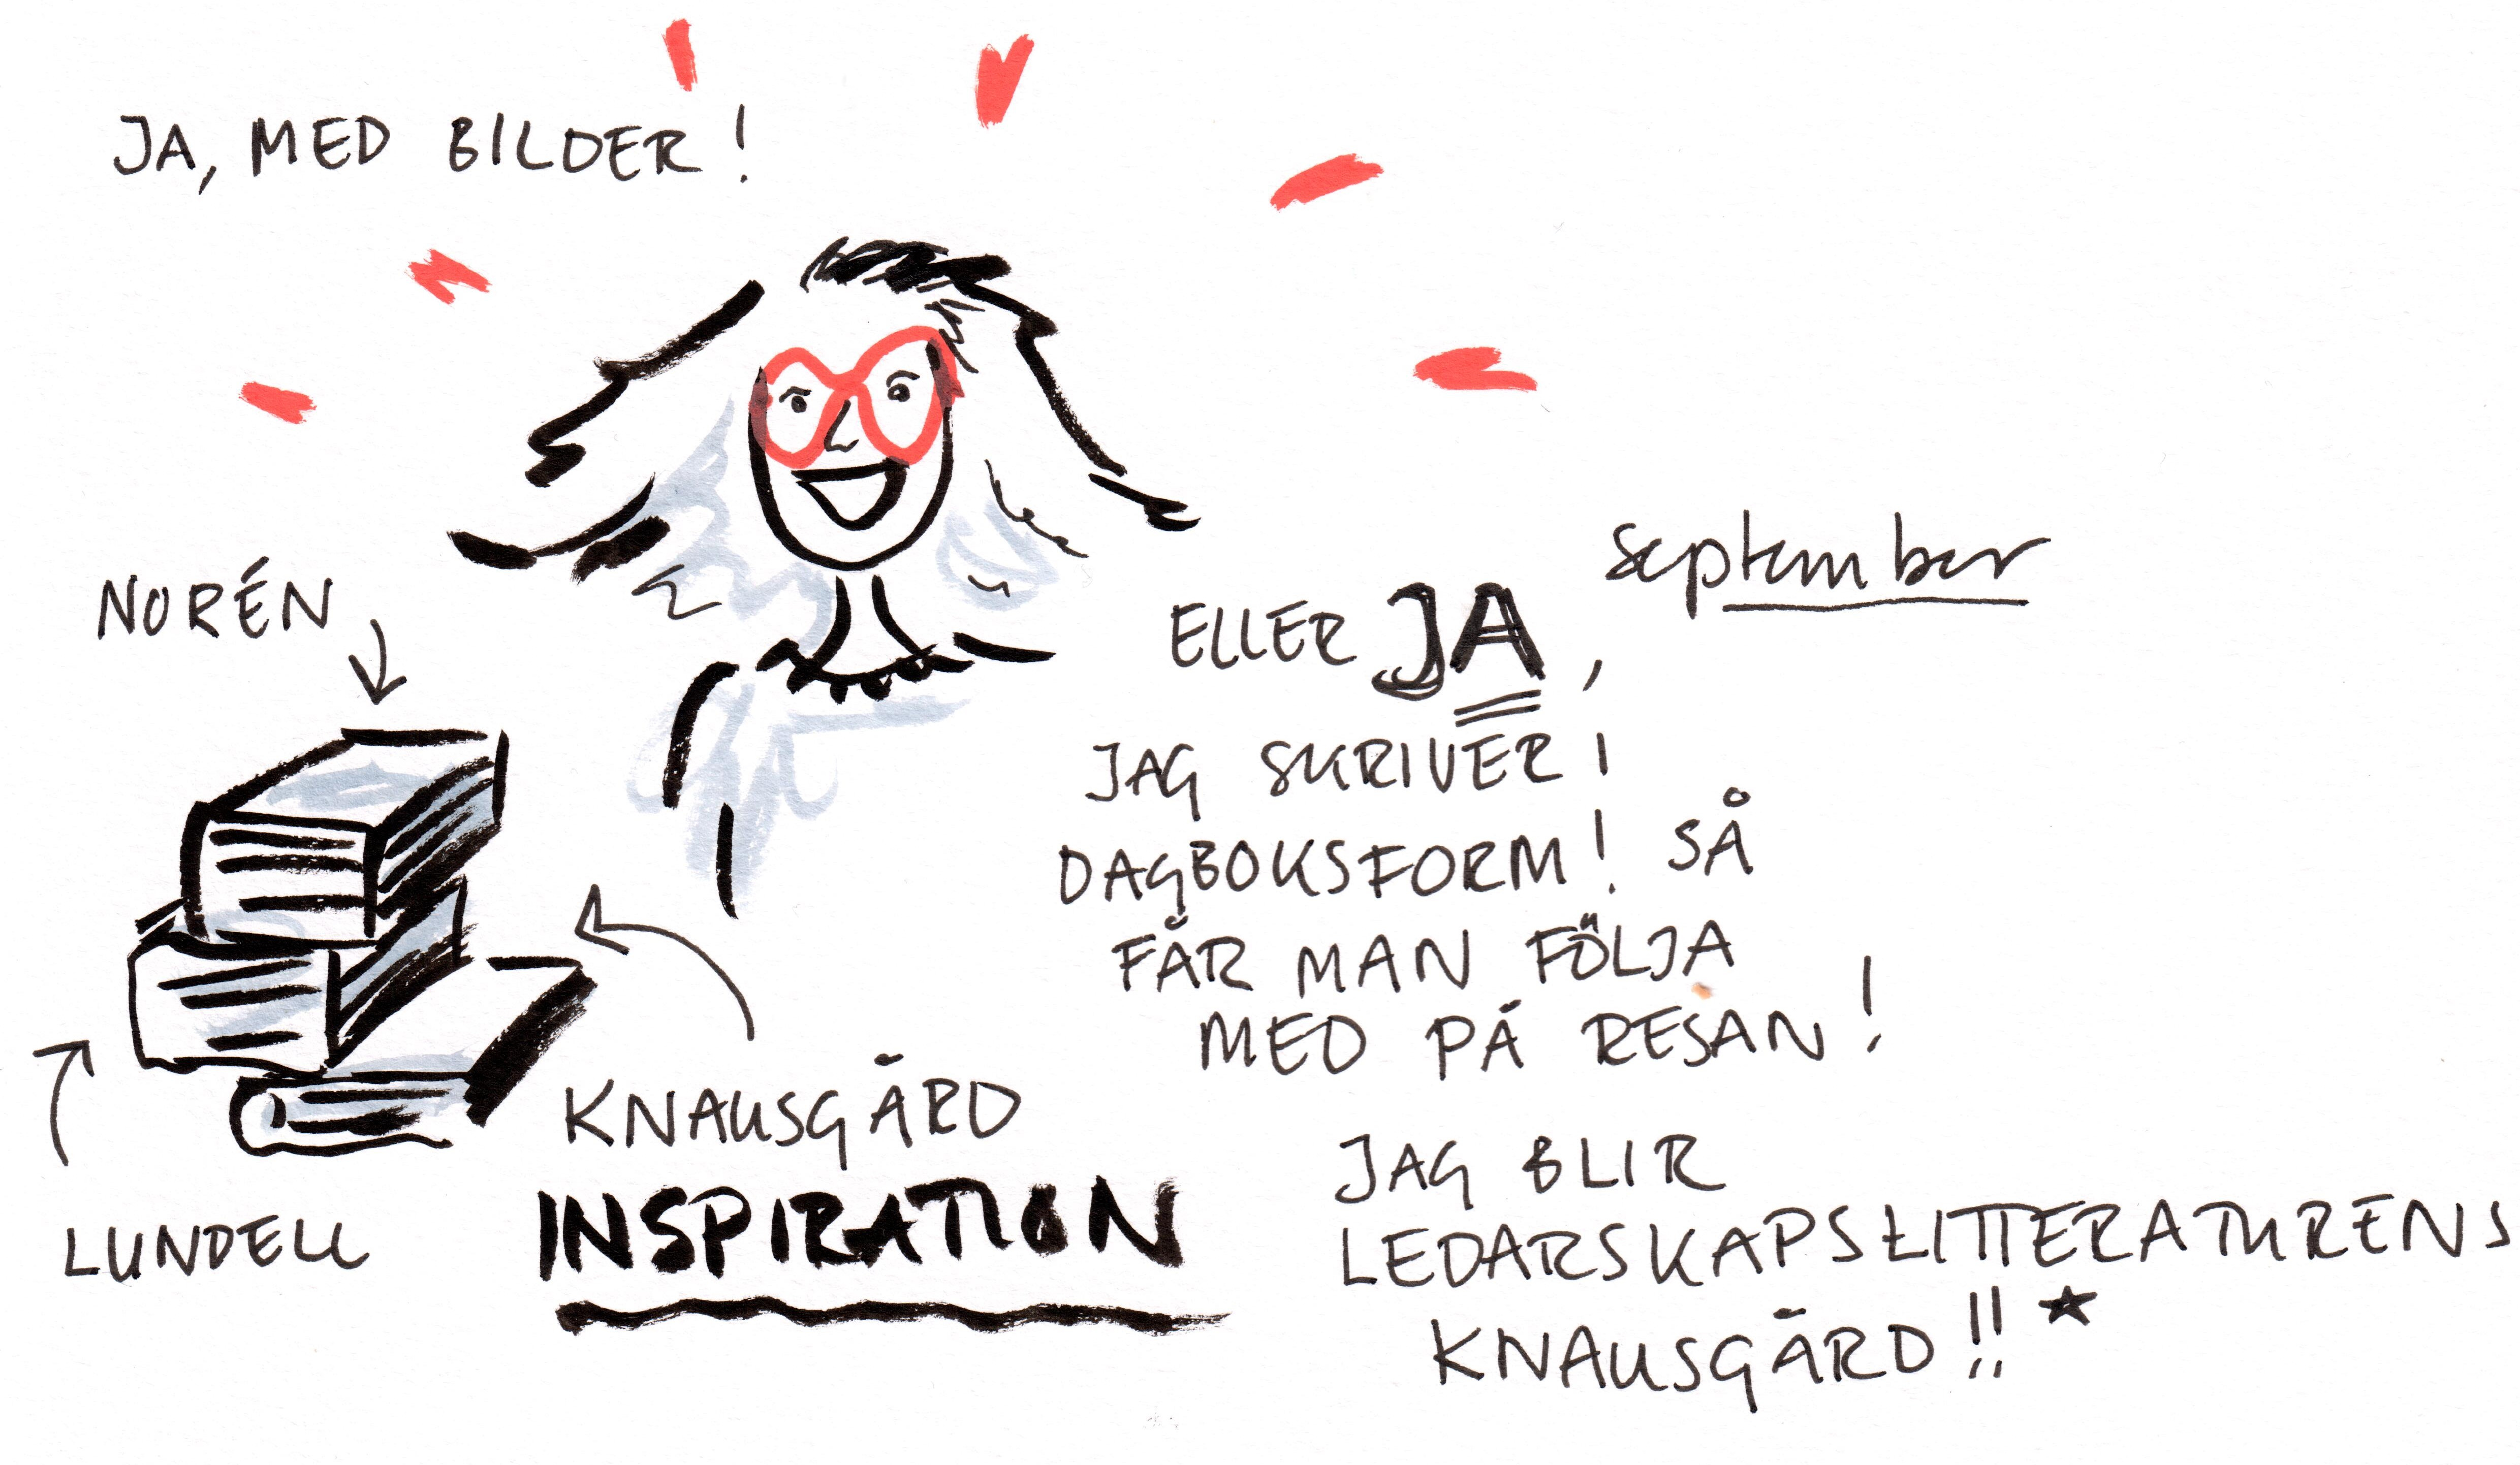 JA, MED BILDER!
NORÉN
LUNDELL
KNAUSGÅRD
INSPIRATION
september
ELLER JA,
JAG SKRIVER I
DAGBOKSFORM! SÅ
FÅR MAN FÖLJA
MED PÅ RESAN!
JAG BLIR
LEDARSKAPSLITTERATURENS
KNAUSGÅRD!!*